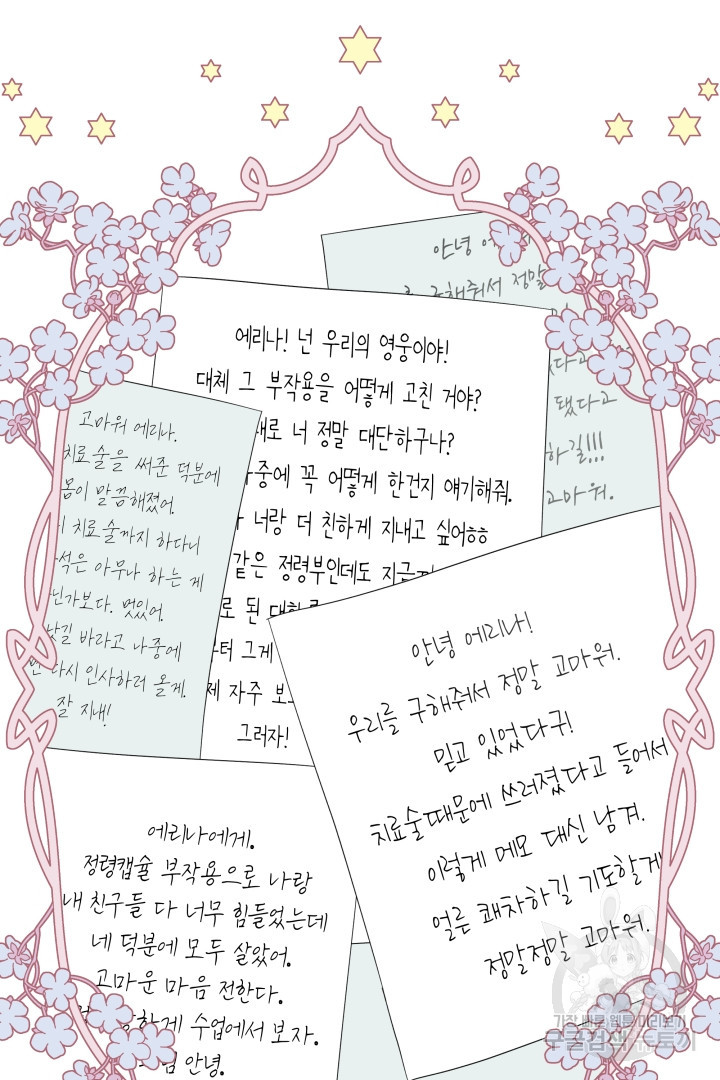 안녕
구해줘서 정말
다고
됐다고
하길!!!
고마워.
에리나! 넌 우리의 영웅이야!
대체 그 부작용을 어떻게 고친 거야?
너 정말 대단하구나?
나중에 꼭 어떻게 한건지 얘기해줘.
너랑 더 친하게 지내고 싶어ㅎㅎ
같은 정령부인데도
된
그게
자주
그러자!
고마워 에리나.
치료술을 써준 덕분에
몸이 말끔해졌어.
치료술까지 하다니
석은 아무나 하는 게
닌가보다. 멋있어.
길 바라고 나중에
다시 인사하러 올게.
잘 지내!
안녕 에리나!
우리를 구해줘서 정말 고마워.
믿고 있었다구!
치료술때문에 쓰러졌다고 들어서
이렇게 메모 대신 남겨.
얼른 쾌차하길 기도할게
정말정말 고마워.
에리나에게.
정령캡슐 부작용으로 나랑
내 친구들 다 너무 힘들었는데
네 덕분에 모두 살았어.
고마운 마음 전한다.
하게 수업에서 보자.
안녕.
가장 빠른 웹툰 미리보기
구글검색 뉴토끼